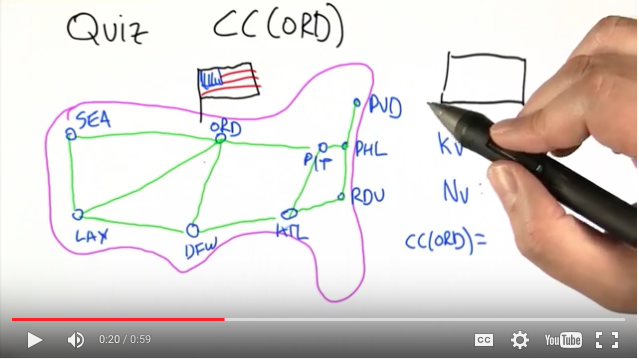 Quiz CC(ORD)
SEA
ORD
PVD
PIT
PHL
RDU
LAX
DFW
ATL
Kv
Nv :
CC(ORD)=
0:20 / 0:59
CC
YouTube